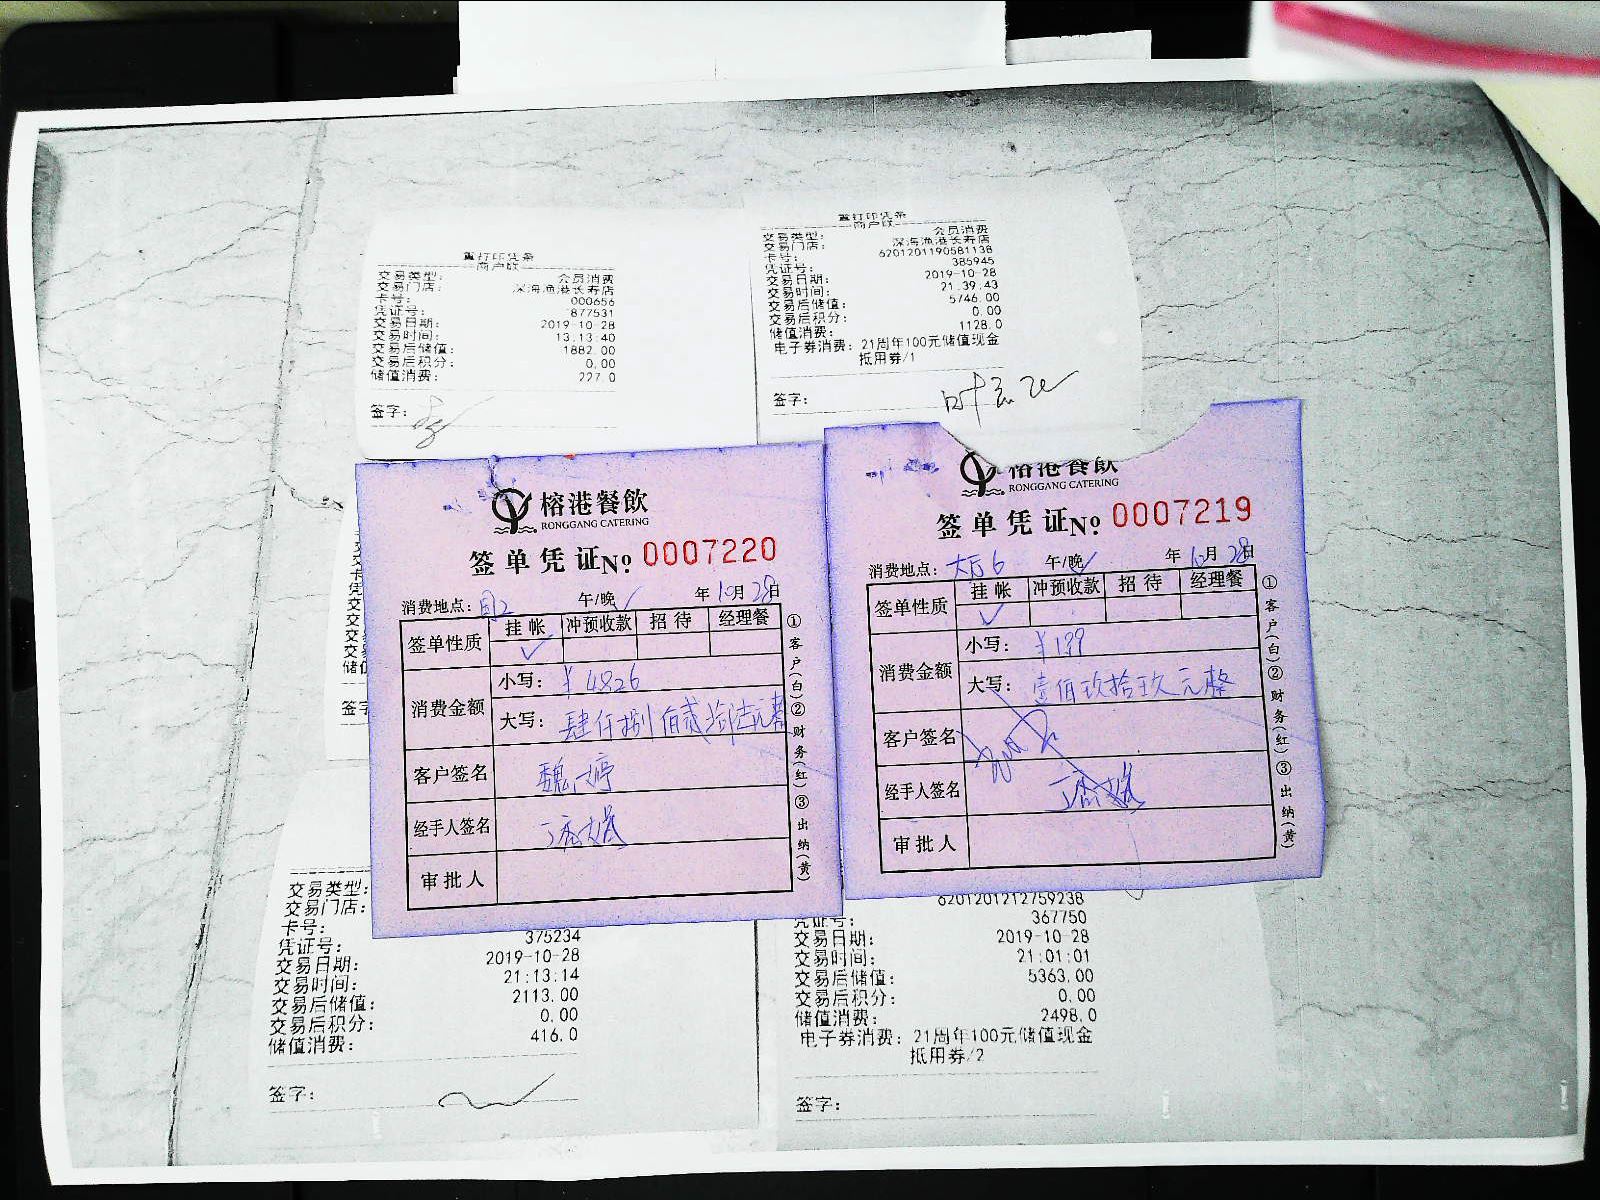 重打印凭条
商户联
交易类型: 会员消费
交易门店: 深海渔港长寿店
卡号: 000656
凭证号: 877531
交易日期: 2019-10-28
交易时间: 13:13:40
交易后储值: 1882.00
交易后积分: 0.00
储值消费: 227.0
签字:
重打印凭条
商户联
交易类型: 会员消费
交易门店: 深海渔港长寿店
卡号: 6201201190581138
凭证号: 385945
交易日期: 2019-10-28
交易时间: 21:39:43
交易后储值: 5746.00
交易后积分: 0.00
储值消费: 1128.0
电子券消费: 21周年100元储值现金
抵用券/1
签字:
榕港餐飲
RONGGANG CATERING
签单凭证No. 0007220
消费地点: 午/晚 年 10月 28日
签单性质 挂帐 冲预收款 招待 经理餐
消费金额 小写: ¥4826
大写: 肆仟捌佰贰拾陆元整
客户签名 魏婷
经手人签名
审批人
①客户(白)②财务(红)③出纳(黄)
榕港餐飲
RONGGANG CATERING
签单凭证No. 0007219
消费地点: 大厅6 午/晚 年 10月 28日
签单性质 挂帐 冲预收款 招待 经理餐
消费金额 小写: ¥199
大写: 壹佰玖拾玖元整
客户签名
经手人签名
审批人
①客户(白)②财务(红)③出纳(黄)
签字
交易类型:
交易门店:
卡号:
凭证号: 375234
交易日期: 2019-10-28
交易时间: 21:13:14
交易后储值: 2113.00
交易后积分: 0.00
储值消费: 416.0
签字:
6201201212759238
凭证号: 367750
交易日期: 2019-10-28
交易时间: 21:01:01
交易后储值: 5363.00
交易后积分: 0.00
储值消费: 2498.0
电子券消费: 21周年100元储值现金
抵用券/2
签字: